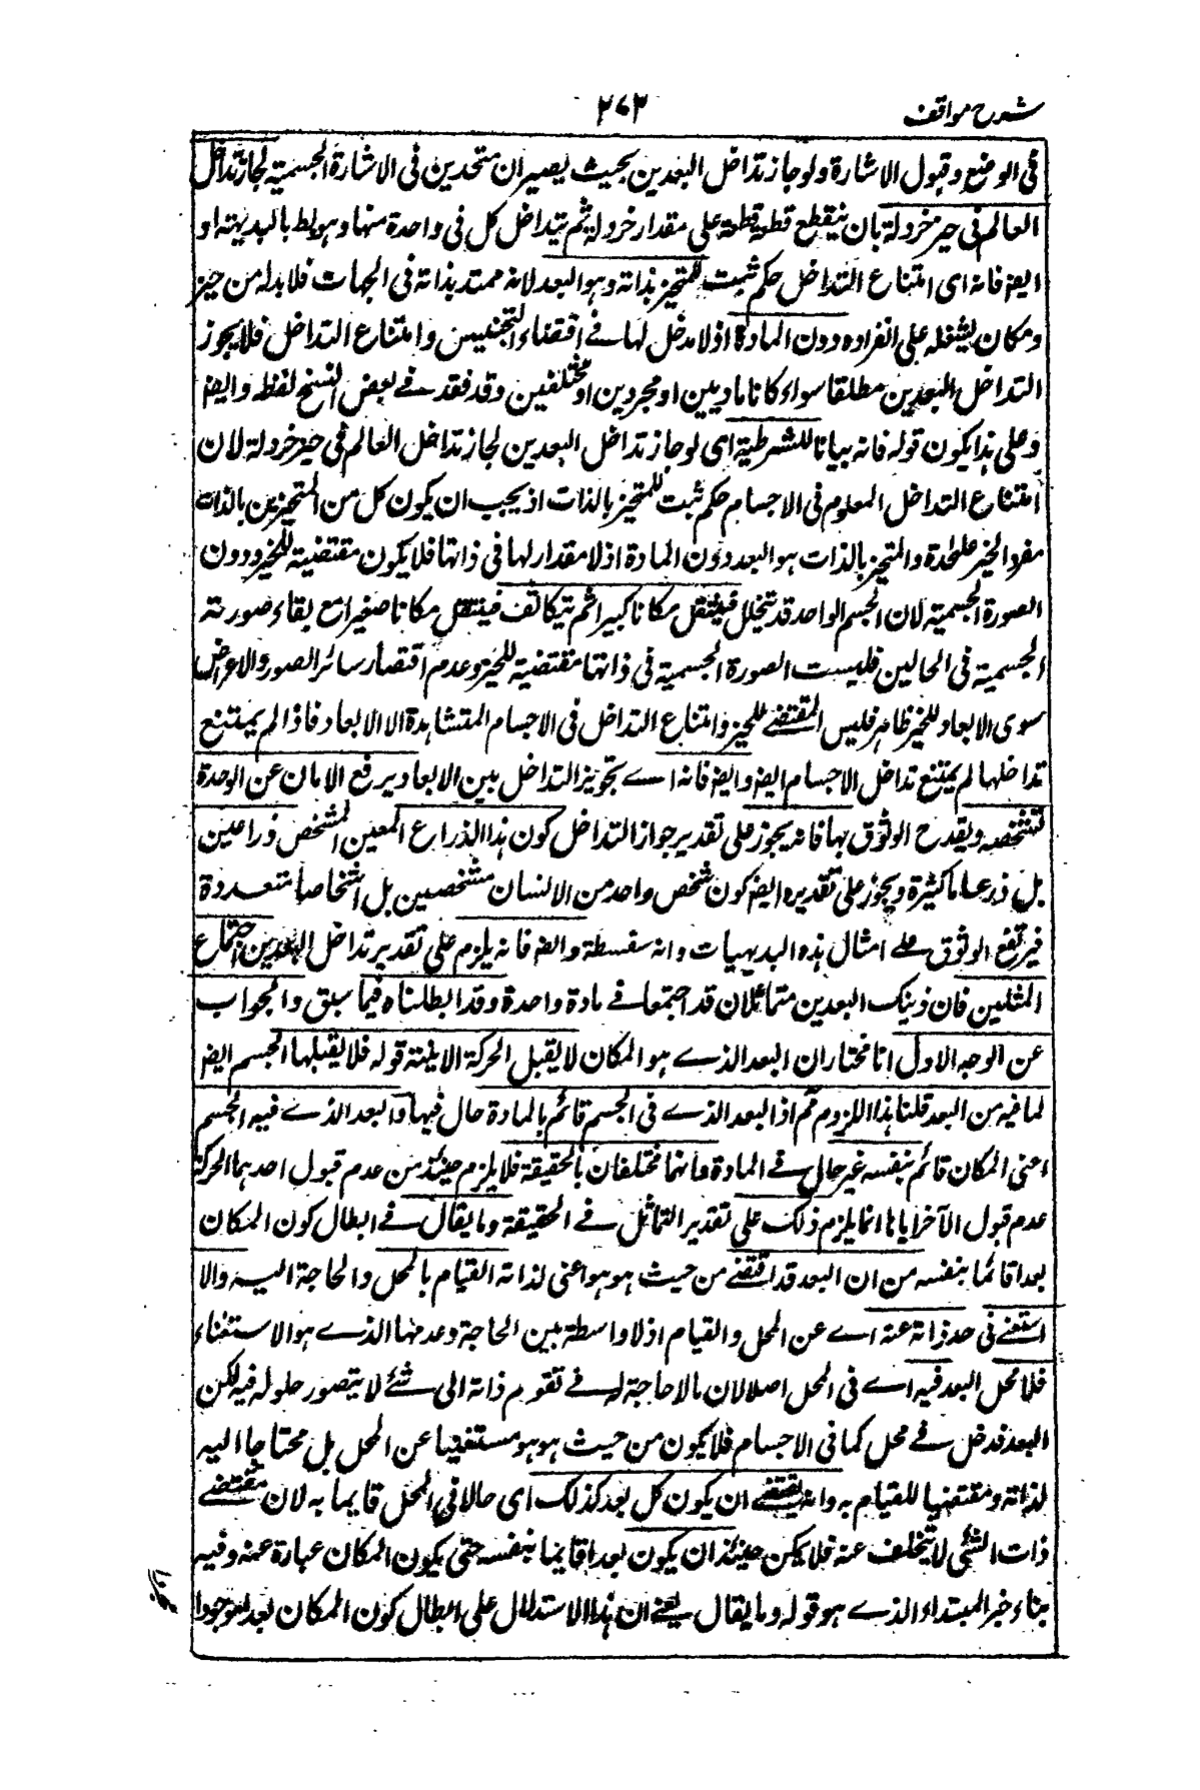 شرح مواقف
٢٧٣
فى الوضع وقبول الاشارة ولو جاز تداخل البعدين بحيث يصيران متحدين فى الاشارة الجسمية لجاز تداخل
العالم فى حيز خردلة بان ينقطع قطعة قطعة على مقدار خردلة ثم يتداخل كل فى واحدة منها وهو بط بالبديهة او
ايضا فانه اى امتناع التداخل حكم ثبت للمتحيز بذاته وهو البعد لانه ممتد بذاته فى الجهات فلا بد له من حيز
ومكان يشغله على انفراده دون المادة اذ لا مدخل لها فى اقتضاء التحيز وامتناع التداخل فلا يجوز
التداخل البعدين مطلقا سواء كانا ماديين او مجردين او مختلفين وقد فقد فى بعض النسخ لفظه وايضا
وعلى هذا يكون قوله فانه بيانا للشرطية اى لو جاز تداخل البعدين لجاز تداخل العالم فى حيز خردلة لان
امتناع التداخل المعلوم فى الاجسام حكم ثبت للمتحيز بالذات اذ يجب ان يكون كل من المتحيزين بالذات
منفردا بحيز على حدة والمتحيز بالذات هو البعد دون المادة اذ لا مقدار لها فى ذاتها فلا يكون مقتضية للحيز ودون
الصورة الجسمية لان الجسم الواحد قد تتخلل فيشغل مكانا كبيرا ثم يتكاثف فيشغل مكانا صغيرا مع بقاء صورته
الجسمية فى الحالين فليست الصورة الجسمية فى ذاتها مقتضية للحيز وعدم اقتضاء سائر الصور والاعراض
سوى الابعاد للحيز ظاهر فليس المقتضى للحيز وامتناع التداخل فى الاجسام المتشاهدة الا الابعاد فاذا لم يمتنع
تداخلها لم يمتنع تداخل الاجسام ايضا وايضا فانه اى تجويز التداخل بين الابعاد يرفع الامان عن الوحدة
الشخصية ويقدح الوثوق بها فانه يجوز على تقدير جواز التداخل كون هذا الذراع المعين المشخص ذراعين
بل ذرعانا كثيرة ويجوز على تقديره ايضا كون شخص واحد من الانسان شخصين بل اشخاصا متعددة
فيرتفع الوثوق على امثال هذه البديهيات وانه سفسطة وايضا فانه يلزم على تقدير تداخل البعدين اجتماع
المثلين فان ذينك البعدين متماثلان قد اجتمعا فى مادة واحدة وقد ابطلناه فيما سبق والجواب
عن الوجه الاول انا نختار ان البعد الذى هو المكان لا يقبل الحركة الاينية قوله فلا يقبلها الجسم ايضا
لما فيه من البعد قلنا هذا اللزوم مم اذ البعد الذى فى الجسم قائم بالمادة حال فيها والبعد الذى فيه الجسم
اعنى المكان قائم بنفسه غير حال فى المادة وانهما مختلفان بالحقيقة فلا يلزم حينئذ من عدم قبول احدهما الحركة
عدم قبول الآخر اياها انما يلزم ذلك على تقدير التماثل فى الحقيقة وما يقال فى ابطال كون المكان
بعدا قائما بنفسه من ان البعد قد اقتضى من حيث هو هو اعنى لذاته القيام بالمحل والحاجة اليه والا
استغنى فى حد ذاته عنه اى عن المحل والقيام اذ لا واسطة بين الحاجة وعدمها الذى هو الاستغناء
فلا يحل البعد فيه اى فى المحل اصلا لان ما لا حاجة له فى تقوم ذاته الى شئ لا يتصور حلوله فيه لكن
البعد قد حل فى محل كما فى الاجسام فلا يكون من حيث هو هو مستغنيا عن المحل بل محتاجا اليه
لذاته ومقتضيا للقيام به وانه يقتضى ان يكون كل بعد كذلك اى حالا فى المحل قايما به لان مقتضى
ذات الشئ لا يتخلف عنه فلا يمكن حينئذ ان يكون بعدا قايما بنفسه حتى يكون المكان عبارة عنه وفيه
بناء خبر المبتداء الذى هو قوله وما يقال يعنى ان هذا الاستدلال على ابطال كون المكان بعدا موجودا